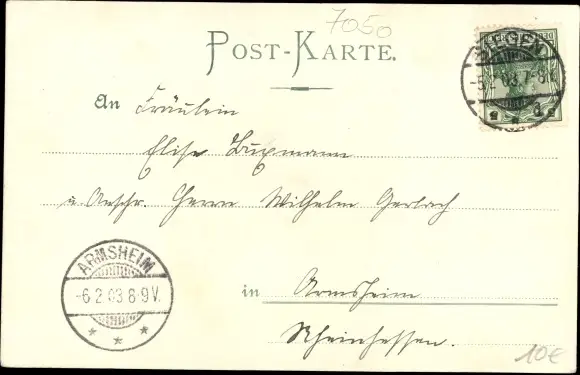 7050
POST-KARTE.
SIEGEN
-5.2.03.7-8N.
An Fräulein
Elise
u. Anschr. Herrn Wilhelm Gerlach
ARMSHEIM
-6.2.03 8-9V.
in Armsheim
Rheinhessen.
10€